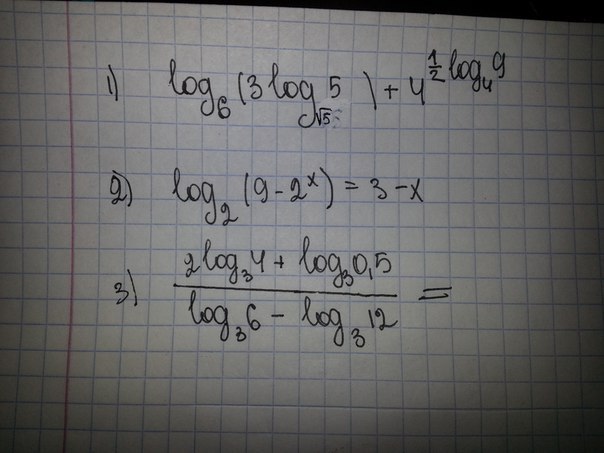 1) log₆(3log_√5 5) + 4^(1/2 log₄ 9)
2) log₂(9 - 2ˣ) = 3 - x
3) (2log₃4 + log₃0,5)/(log₃6 - log₃12) =